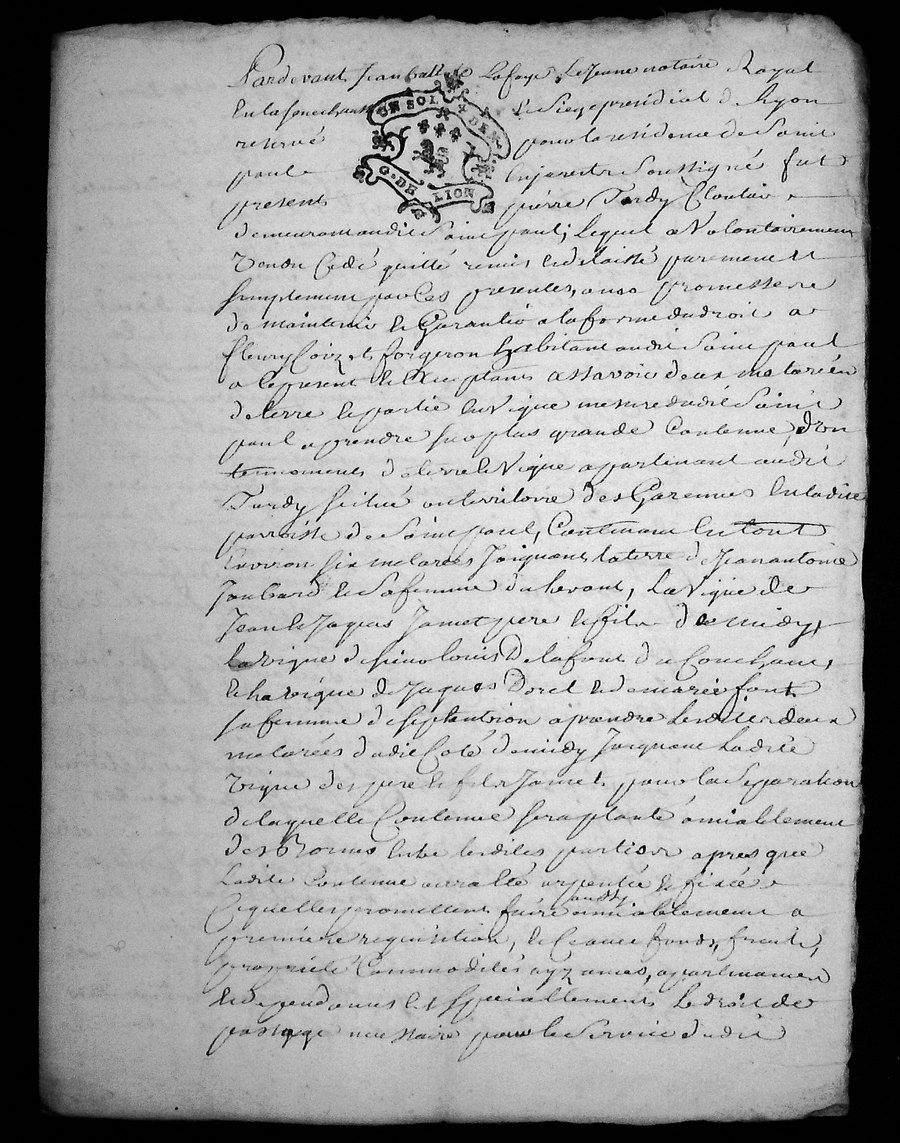 Pardevant Jean Lafaye Lejeune notaire Royal
En la senechaussé & Siege presidial de Lyon
reservé pour la residence de Saint
paul Enjarest Soussigné fut
present pierre Tardy Cloutier
demeurant audit Saint paul, lequel a volontairement
Vendu Cedé quitté remis et delaissé purement et
simplement par Ces presentes, avec promesse de
de maintenir et Garantir a la forme du droit a
fleury forgeron habitant audit Saint paul
a le present et acceptant assavoir deux meterées
de terre et partie en Vigne mesure dudit Saint
paul a prendre sur plus grande Contenue, d'un
tennement de terre et Vigne apartenant audit
Tardy situé au territoire des Garennes En ladite
parroisse de Saint paul, Contenant En tout
Environ six meterées Joignant la terre de Jean antoine
Joubard et Sa femme du levant, La Vigne de
Jean et Jaques Jamet pere et fils de midy,
la vigne de sieur louis Delafont du Couchant,
et la vigne de Jaques Dorel et de marie font
sa femme de septantrion a prendre lesdites deux
meterées dudit Coté de midy Joignant Ladite
Vigne des pere et fils Jamet, pour la Separation
de laquelle Contenue sera planté amiablement
des Bornes Entre lesdites parties apres que
Ladite Contenue aura eté arpentée et fixée
Ce qu'elles promettent faire aussy amiablement a
premiere requisition, et Ce avec fonds, fruits,
proprieté Commodités ayzances, apartenances
et dependances et specialement Le droit de
passage necessaire pour le Service dudit
UN SOL 4 DEN.
G. DE LION